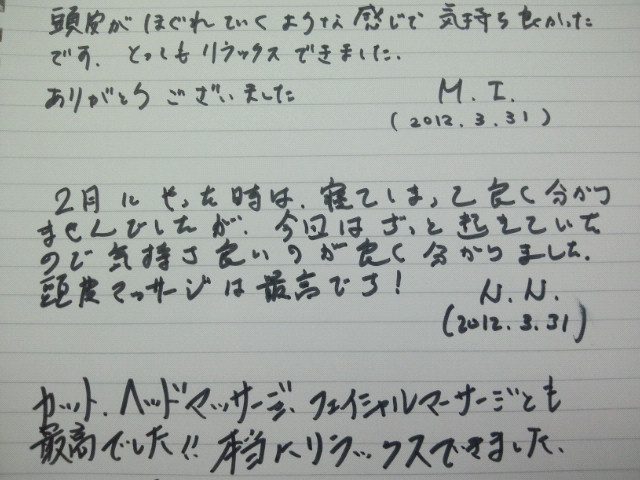 頭皮がほぐれていくような感じで気持ち良かった
です. とってもリラックスできました.
ありがとうございました
M. I.
(2012. 3. 31)
2月にやった時は、寝てしまって良く分かり
ませんでしたが、今回はずっと起きていた
ので気持さ良いのが良く分かりました.
頭皮マッサージは最高です!
N. N.
(2012. 3. 31)
カット、ヘッドマッサージ、フェイシャルマーサージとも
最高でした!! 本当にリラックスできました.